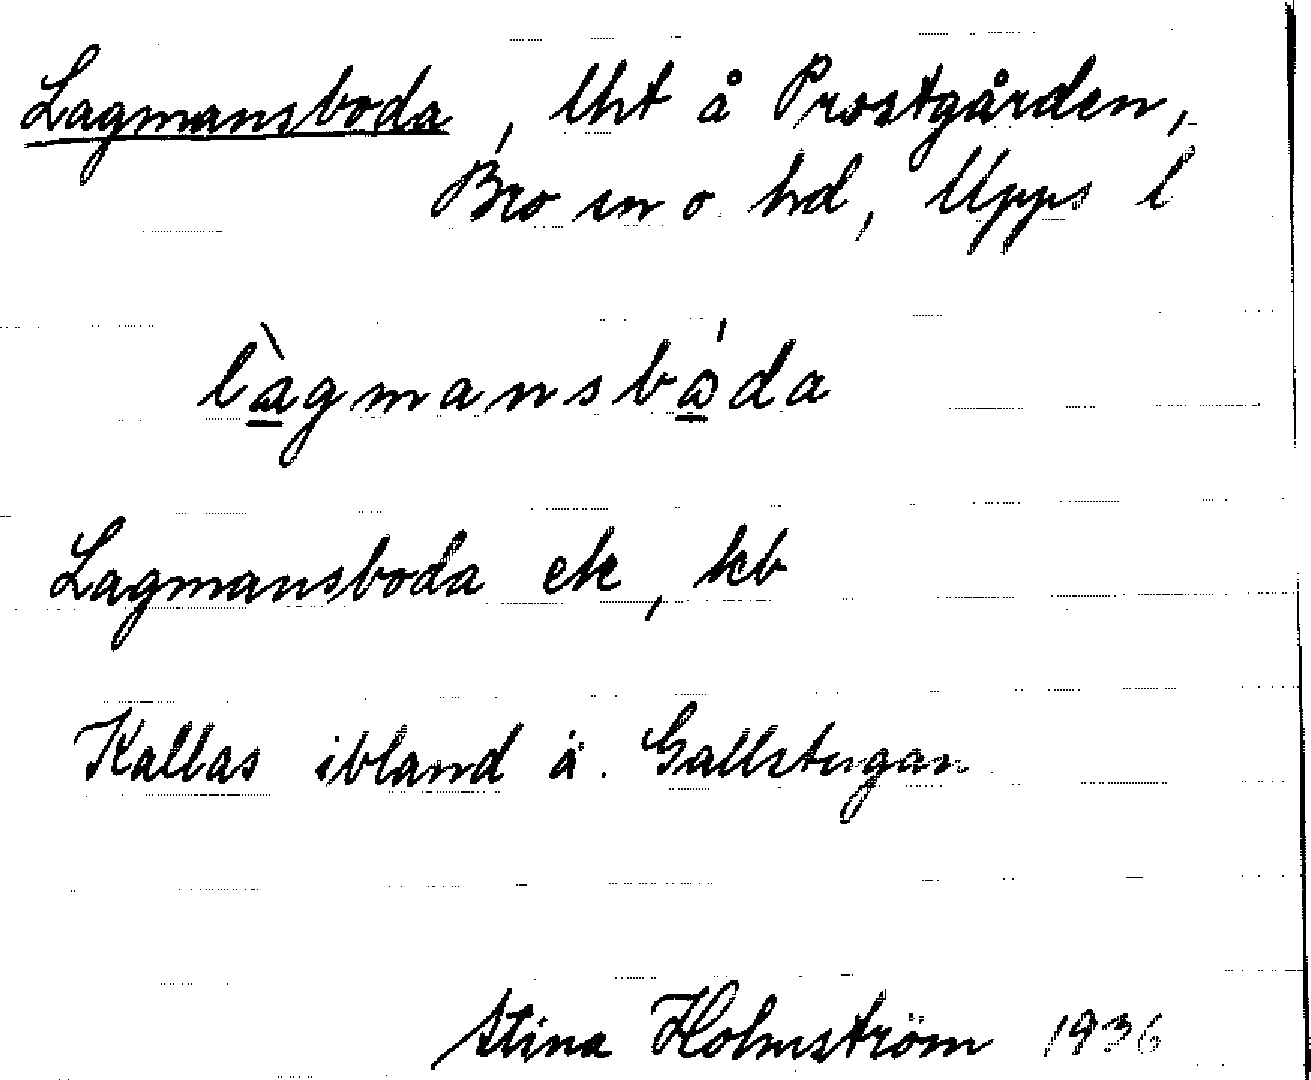 Lagmansboda, lht å Prostgården,
Bro sn o hd, Upps l
làgmansbǻda
Lagmansboda ek, kb
Kallas ibland ä. Gallstugan
Stina Holmström 1936